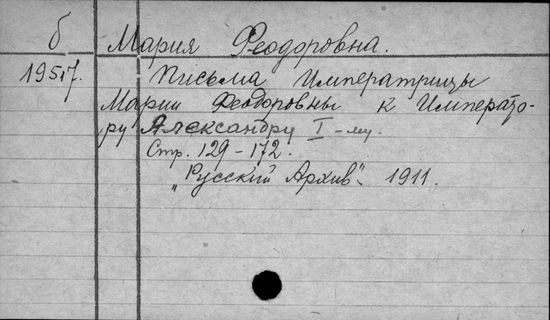 б Мария Феодоровна.
19517. Письма Императрицы
Марии Феодоровны к Императо-
ру Александру I-му.
Стр. 129-172.
„Русский Архив" 1911.